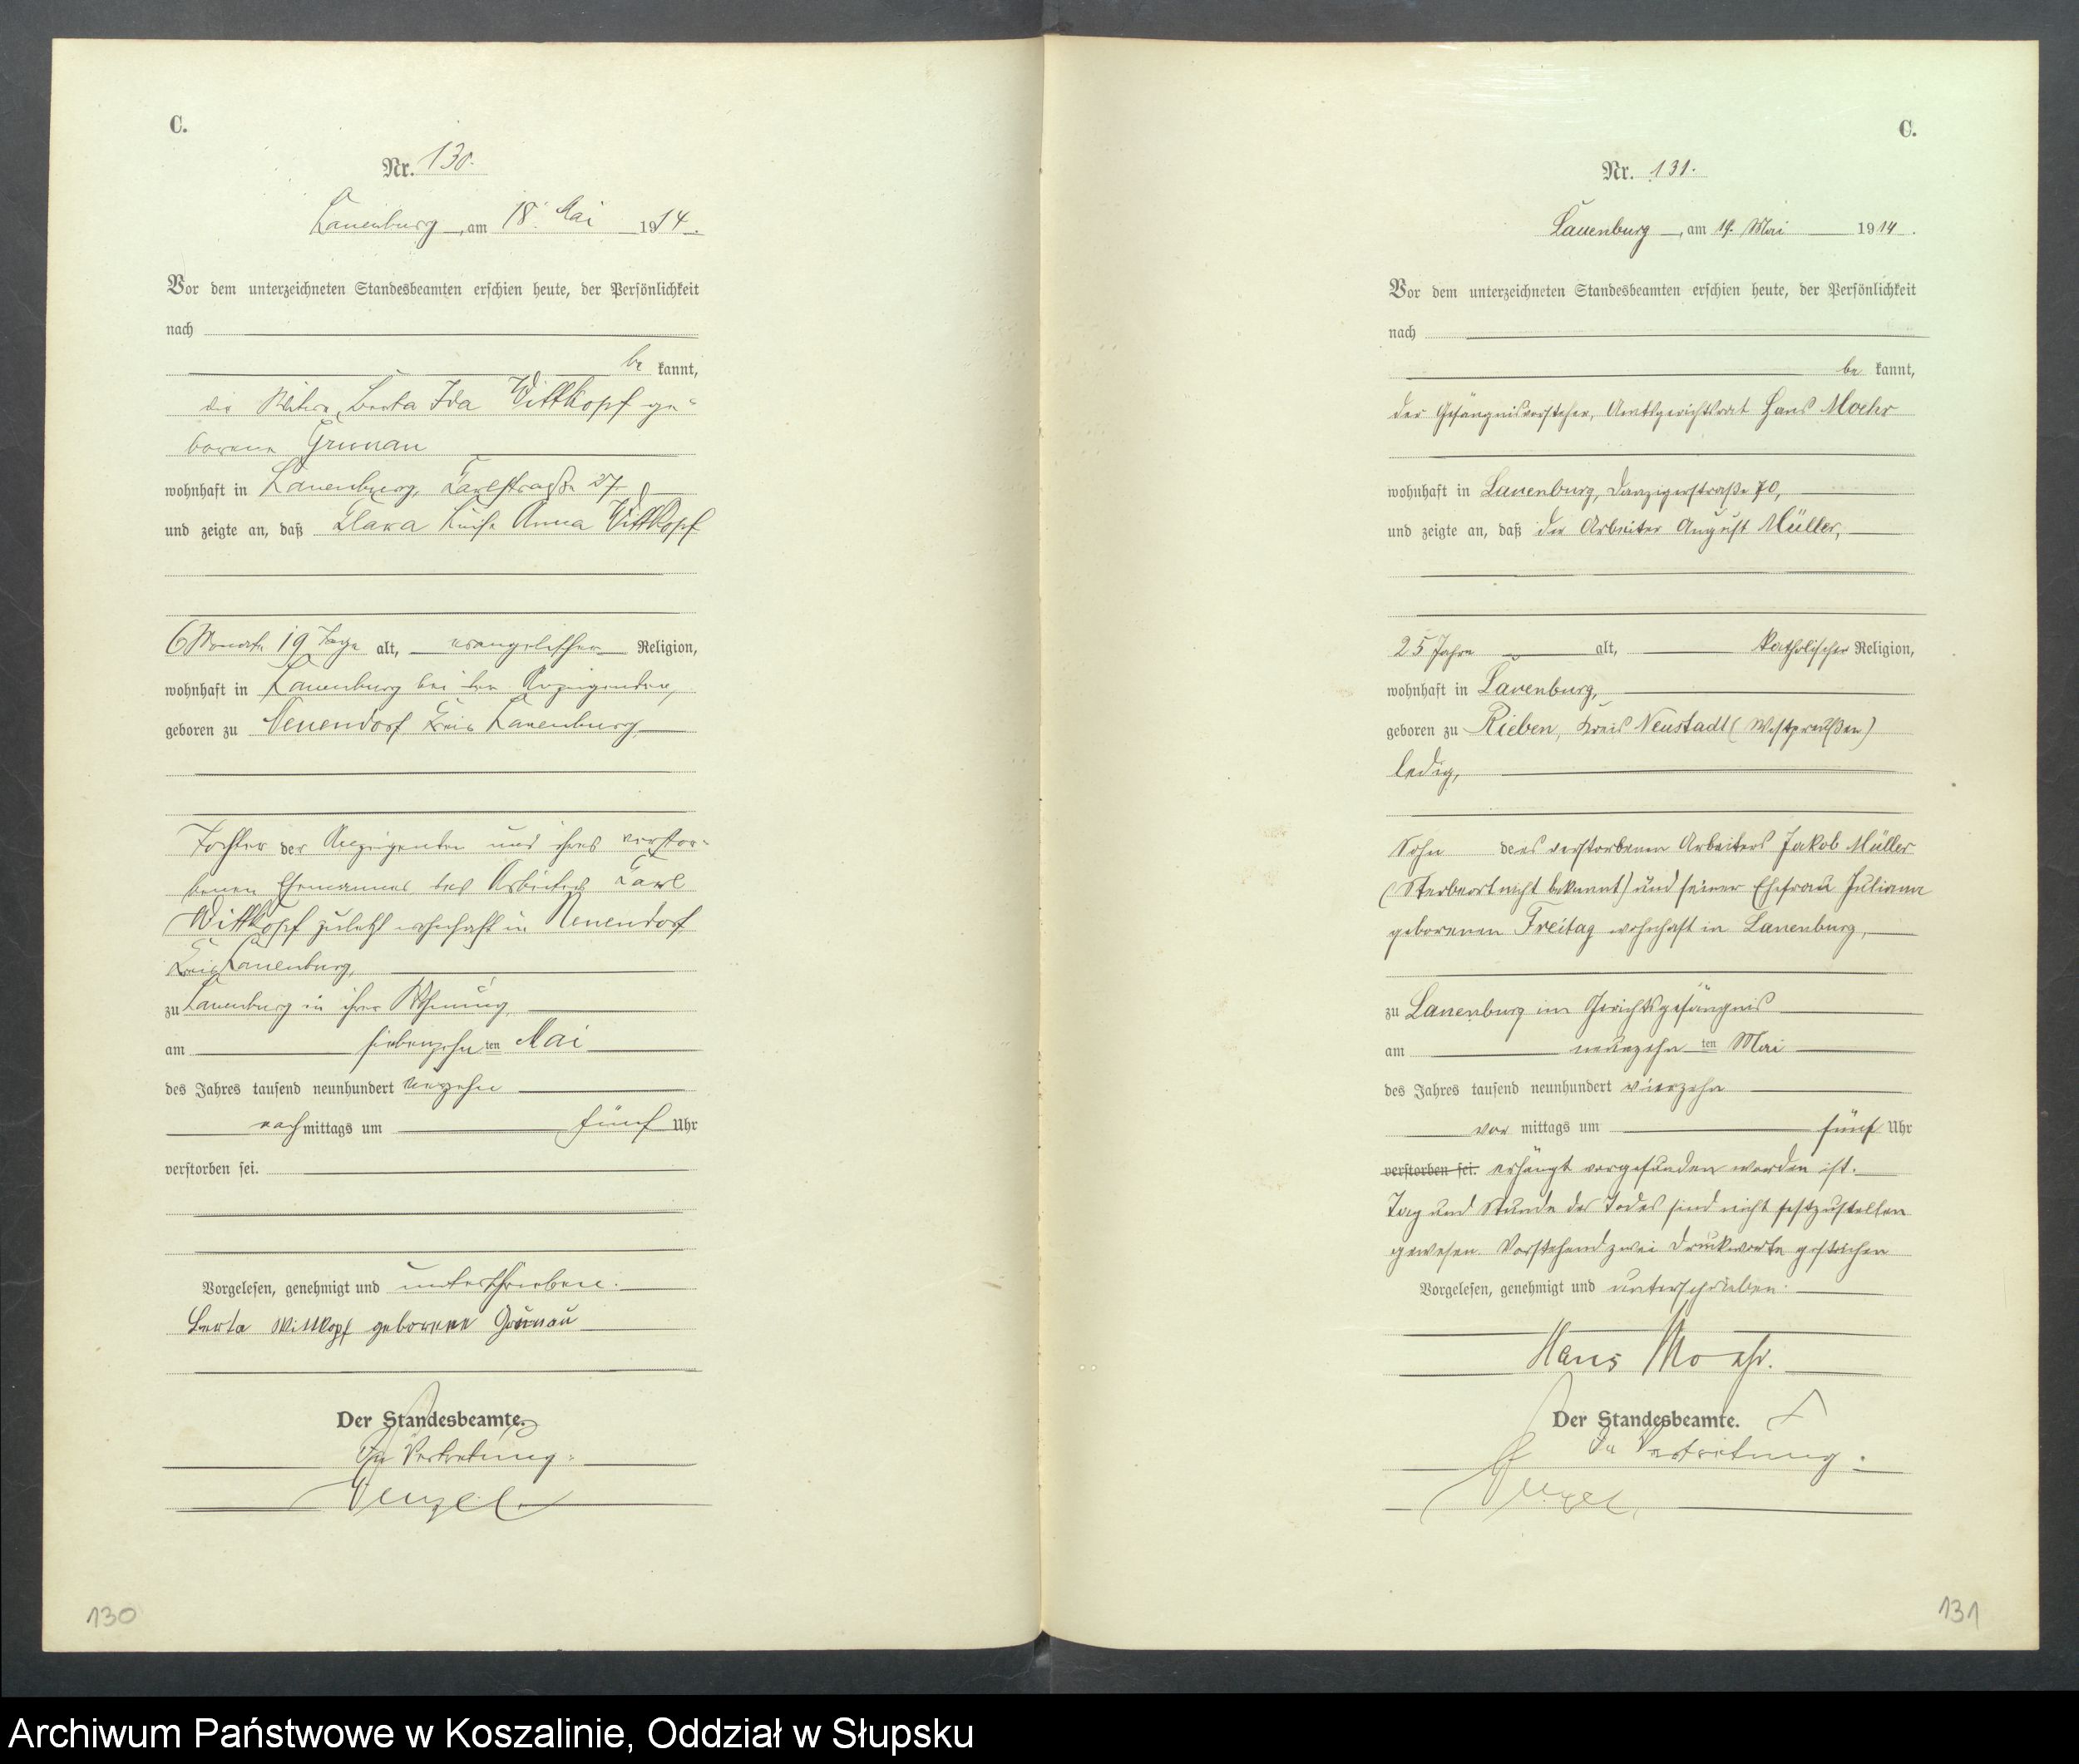 C.
Nr. 130.
Lauenburg, am 18. Mai 1914.
Vor dem unterzeichneten Standesbeamten erschien heute, der Persönlichkeit
nach
be kannt,
die Witwe Berta Ida Wittkopf ge-
borene Grunau
wohnhaft in Lauenburg, Karlstraße 27
und zeigte an, daß Klara Luise Anna Wittkopf
6 Monate 19 Tage alt, evangelischer Religion,
wohnhaft in Lauenburg bei der Anzeigenden,
geboren zu Neuendorf Kreis Lauenburg
Tochter der Anzeigenden und ihres verstor-
benen Ehemannes des Arbeiters Karl
Wittkopf zuletzt wohnhaft in Neuendorf
Kreis Lauenburg,
zu Lauenburg in ihrer Wohnung
am siebenzehn ten Mai
des Jahres tausend neunhundert vierzehn
nach mittags um fünf Uhr
verstorben sei.
Vorgelesen, genehmigt und unterschrieben.
Berta Wittkopf geborene Grunau
Der Standesbeamte.
In Vertretung:
130
C.
Nr. 131.
Lauenburg, am 19. Mai 1914.
Vor dem unterzeichneten Standesbeamten erschien heute, der Persönlichkeit
nach
be kannt,
der Gefängnisvorsteher, Amtsgerichtsrat Hans Moehr
wohnhaft in Lauenburg, Danzigerstraße 70,
und zeigte an, daß der Arbeiter August Müller,
25 Jahre alt, katholischer Religion,
wohnhaft in Lauenburg,
geboren zu Rieben, Kreis Neustadt (Westpreußen)
ledig,
Sohn des verstorbenen Arbeiters Jakob Müller
(Sterbeort nicht bekannt) und seiner Ehefrau Juliana
geborenen Freitag wohnhaft in Lauenburg,
zu Lauenburg im Gerichtsgefängnis
am neunzehn ten Mai
des Jahres tausend neunhundert vierzehn
vor mittags um fünf Uhr
verstorben sei. erhängt vorgefunden worden ist.
Tag und Stunde des Todes sind nicht festzustellen
gewesen. Vorstehend zwei Druckworte gestrichen
Vorgelesen, genehmigt und unterschrieben.
Hans Moehr.
Der Standesbeamte.
In Vertretung.
131
Archiwum Państwowe w Koszalinie, Oddział w Słupsku